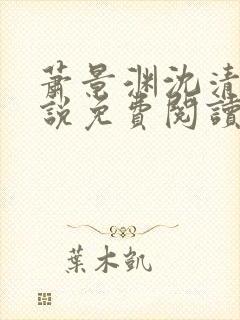 蕭景淵沈清
說免費閱讀
葉木凱